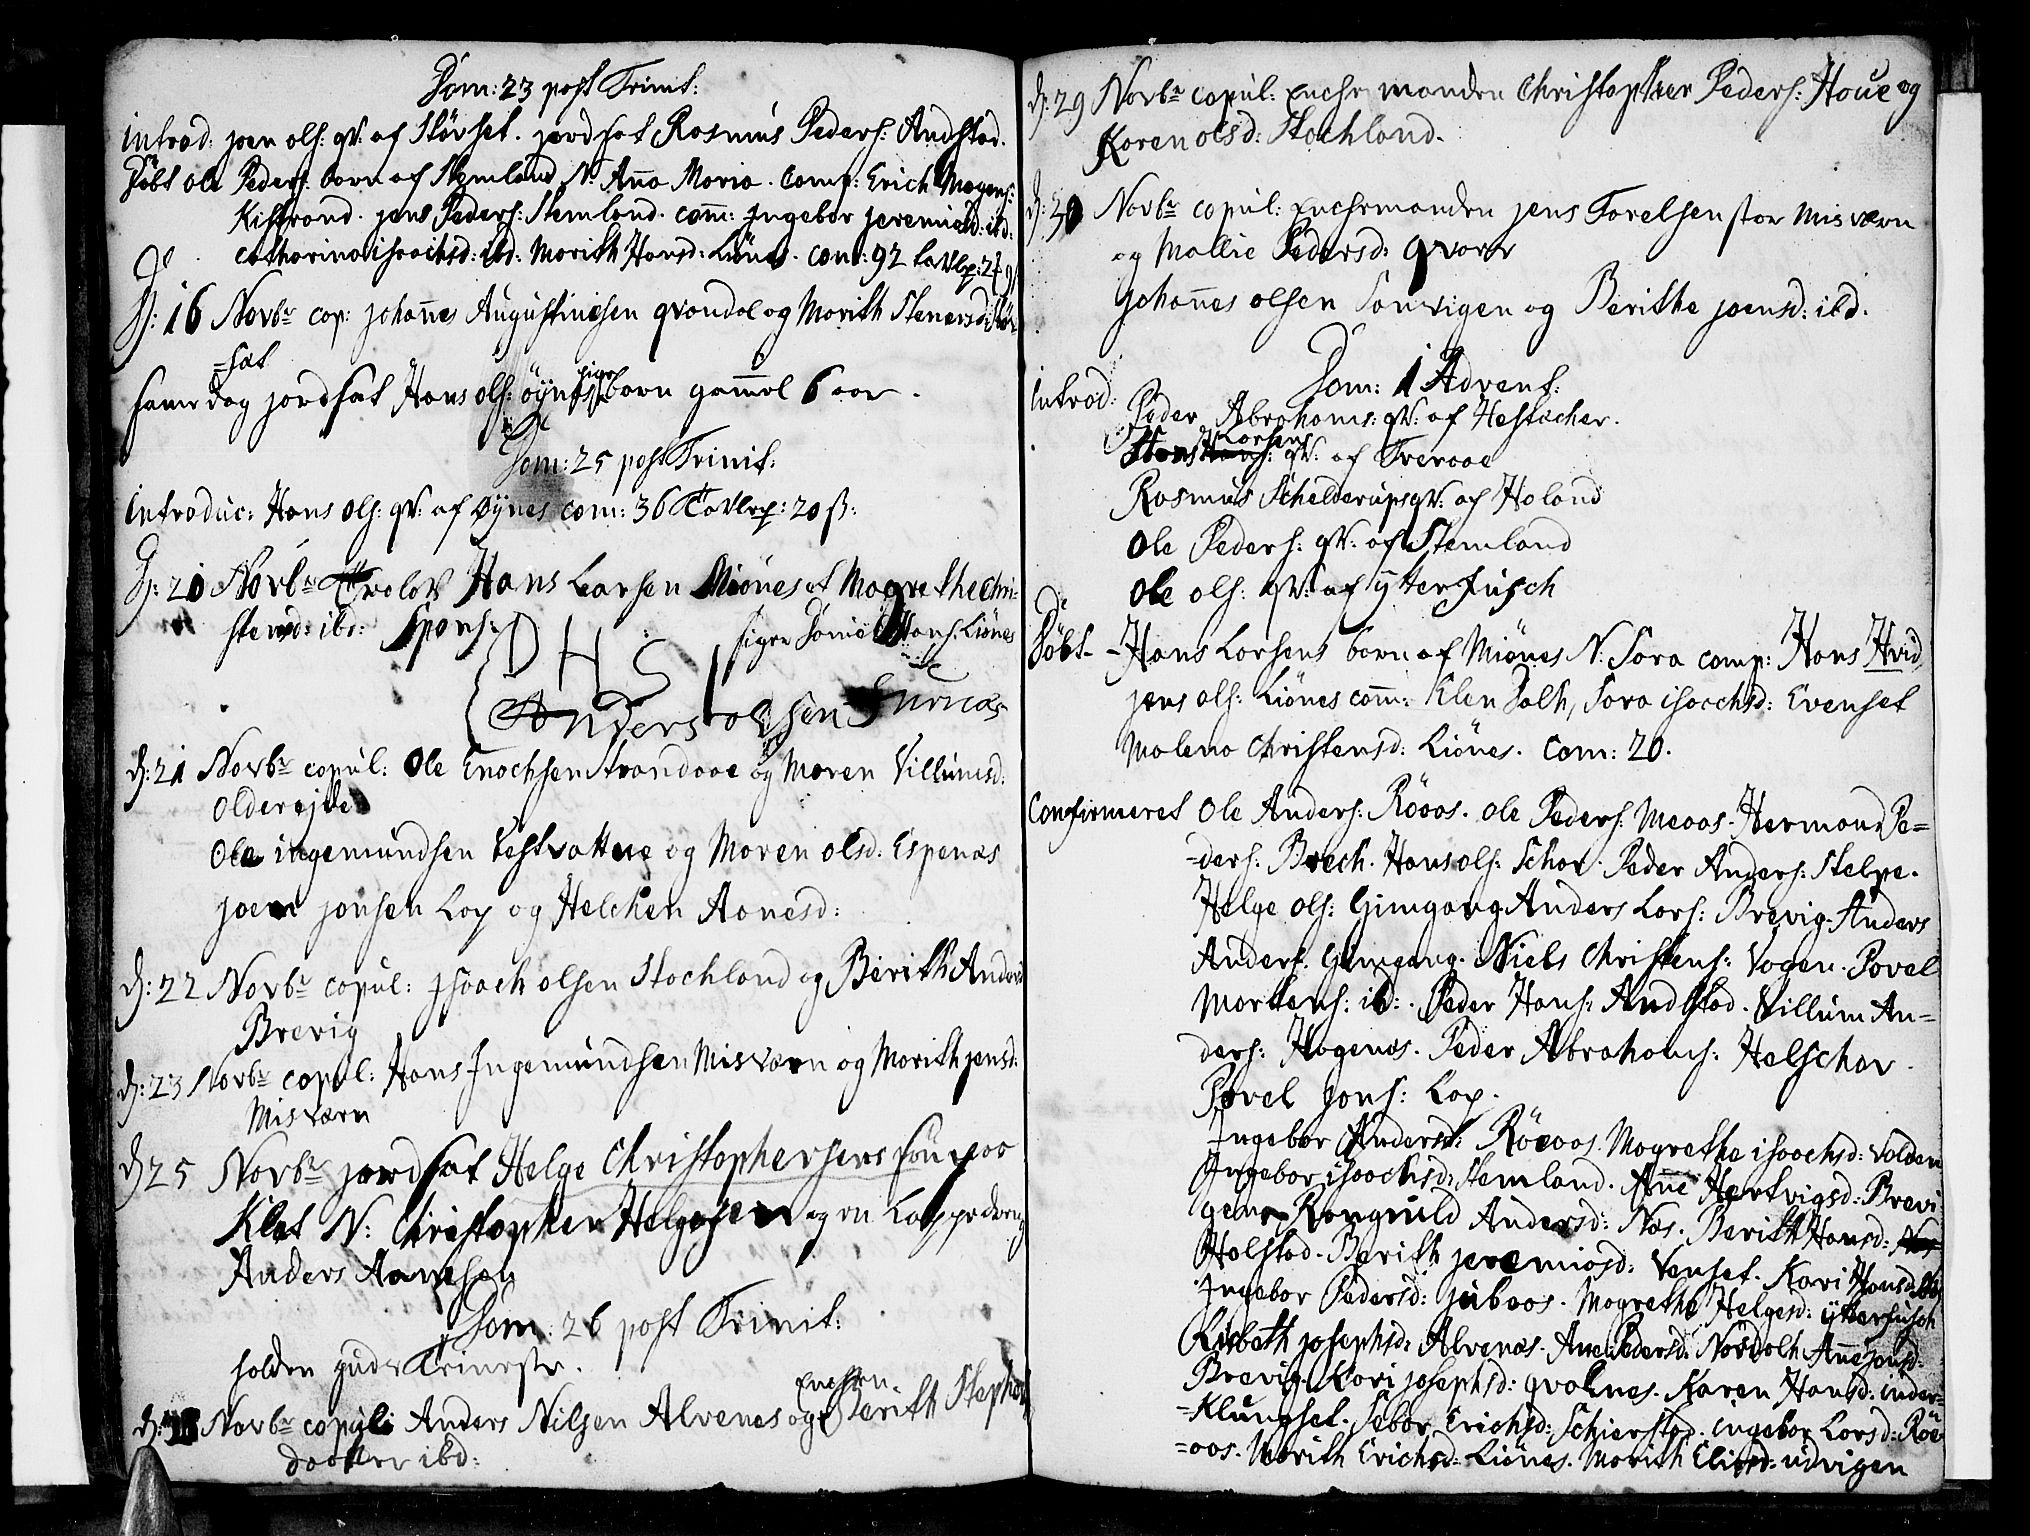 Dom: 23 post Trinit:
introd: joen ols: qv: af Störset. jordsat Rasmus Peders: Andstad.
Döbt Ole Peders. barn af Stemland N: Aña Maria. Comp: Erich Mogens:
Kistrand. jens Peders: Stemland. com̃: Ingebor jeremiæd: ibd:
Catharina isaachsd: ibd: Marith Hansd: Liönes. Com: 92
D: 16 Novbr cop: johañes Augustinesen qvandal og Marith Stenersd:
=sat
same dag jordsat Hans ols: öynes barn gam̃el 6 aar.
Dom: 25 post Trinit:
introduc: Hans Ols: qv: af Öynes com: 36 Tavlep: 20 ß:
D: 20 Novbr Trolov Hans Larsen Miönes et Magrethe Chri-
stensd: ibd: Spons:
D H S
sign Daniel Hans: Liönes
Anders olsen
D: 21 Novbr copul: Ole Enochsen Strandaae og Maren Villumsd:
Oldereide
Ole ingemundsen Festvattne og Maren olsd: Espenæs
joen jonsen Lap og Helchen Aanesd:
D: 22 Novbr copul: jsaach olsen Stochland og Berith Andersd
Brevig
D: 23 Novbr copul: Hans Ingemundsen Misværn og Marith jensd:
Misværn
D 25 Novbr jordsat Helge Christophersens søn paa
Klæt N: Christopher Helgesen og en Lappedreng
Anders Aanesen
Dom: 26 post Trinit:
holden guds Tieneste.
D: 28 Novbr copul: Anders Nilsen Alvenes og Enchen Berith Stephens
daatter ibd:
D: 29 Novbr copul: Enchemanden Christopher Peders: Houe og
Karen olsd: Stochland.
D: 30 Novbr copul: Enchemanden jens Torelsen stor Misværn
og Mallie Pedersd: qvarv
johañes olsen Sanvigen og Berithe joensd: ibd.
Dom: 1 Advent:
introd:
Peder Abrahams: qv: af Hestacher.
Hans Larsens qv: af Fveraae
Rasmus Schelderups qv: af Haland
Ole Peders: qv: af Stemland
Ole ols: qv: af ÿtterfusch
Döbt - Hans Larsens barn af Miönes N: Sara comp: Hans Hvid,
jens ols: Liönes com̃: Elen Dalh, Sara isaachsd: Evenset
Malena Christensd: Liönes. Com: 20.
Confirmeret Ole Anders: Röaas. Ole Peders: Meaas. Herman Pe=
=ders: Brech. Hans ols: Schar. Peder Anders: Stelpe.
Helge ols: Gimgang Anders Lars: Brevig. Anders
Anders. Gimgang. Niels Christens: Vogen. Povel
Mortens: ibd:. Peder Hans: Andstad. Villum An=
ders: Hogenæs. Peder Abrahams: Helschar.
Povel jons: Lap.
Ingebor Andersd: Röeaas. Magrethe isaachsd: Valden
Ingebor isaachsd: Stemland. Añe Hertvigsd: Brevi
gen. Rangnild Andersd: Næs. Berith Hansd:
Halstad. Berith jeremiasd: Venset. Kari Hansd: ibd
Ingebor Pedersd: jubaas. Magrethe Helgesd: ÿtterfusch
Lisbeth josephsd: Alvenæs. Ane Pedersd: Nordalh Añe jensd:
Brevig. Kari josephsd: qvalnes. Karen Hansd: inder=
=Klungset. Sebor Erichsd: Schierstad. ingebor Larsd: Röe
=aas. Marith Erichsd: Liönes. Marith Eliæd: udvigen